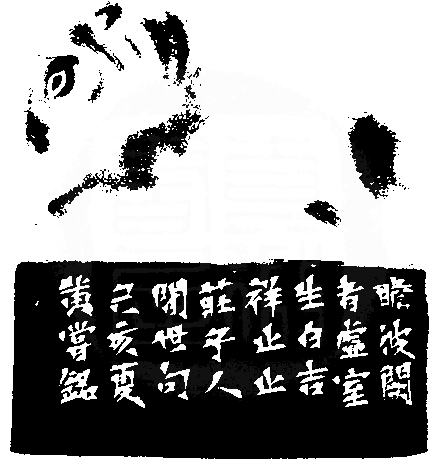 瞻彼闋
者虛室
生白吉
祥止止
莊子人
間世句
己亥夏
黄嘗銘